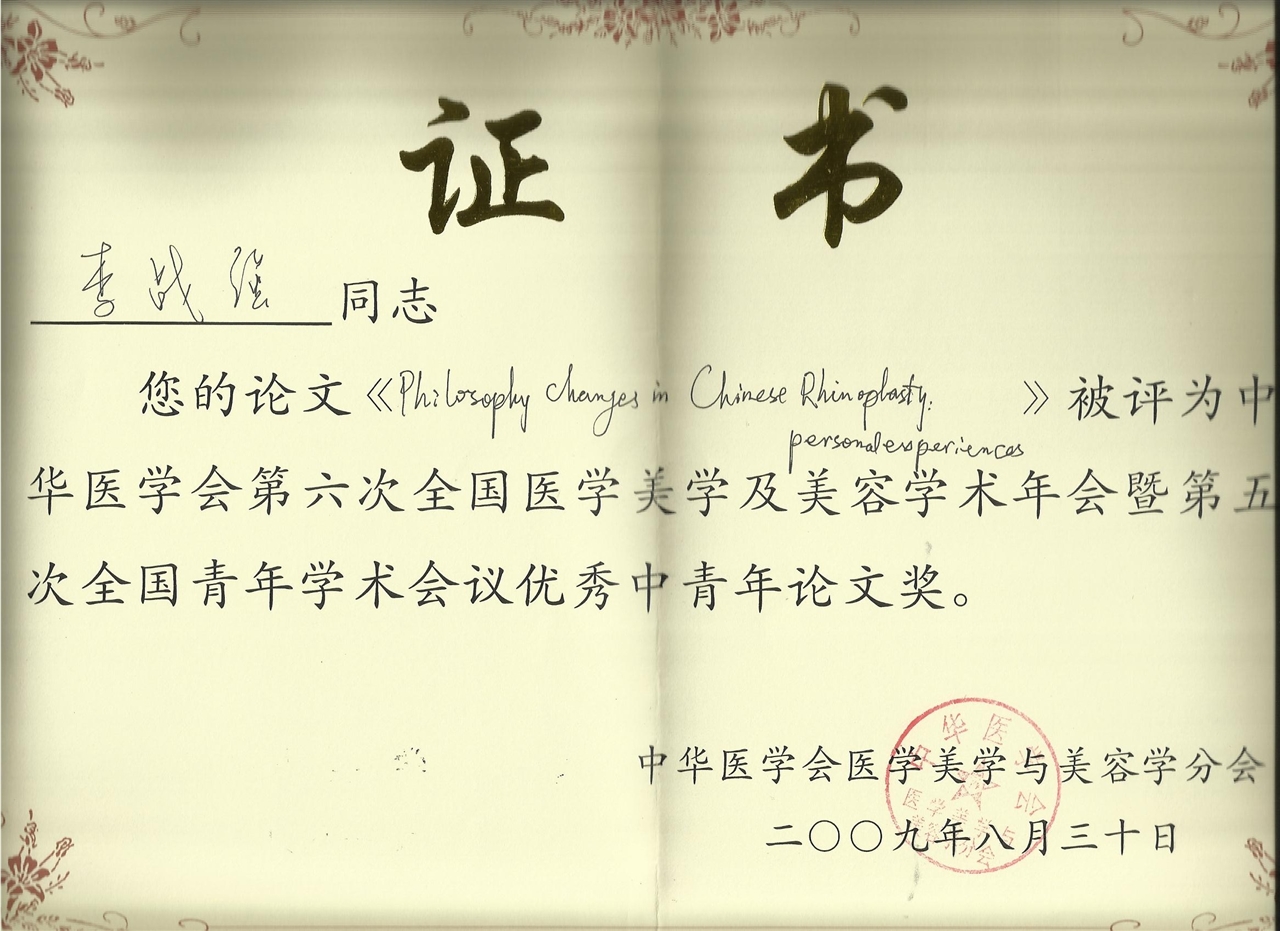 证 书
李战强 同志
您的论文《Philosophy changes in Chinese Rhinoplasty: 》被评为中
personal experiences
华医学会第六次全国医学美学及美容学术年会暨第五
次全国青年学术会议优秀中青年论文奖。
中华医学会
中华医学会医学美学与美容学分会
医学美学与
美容学分会
二〇〇九年八月三十日